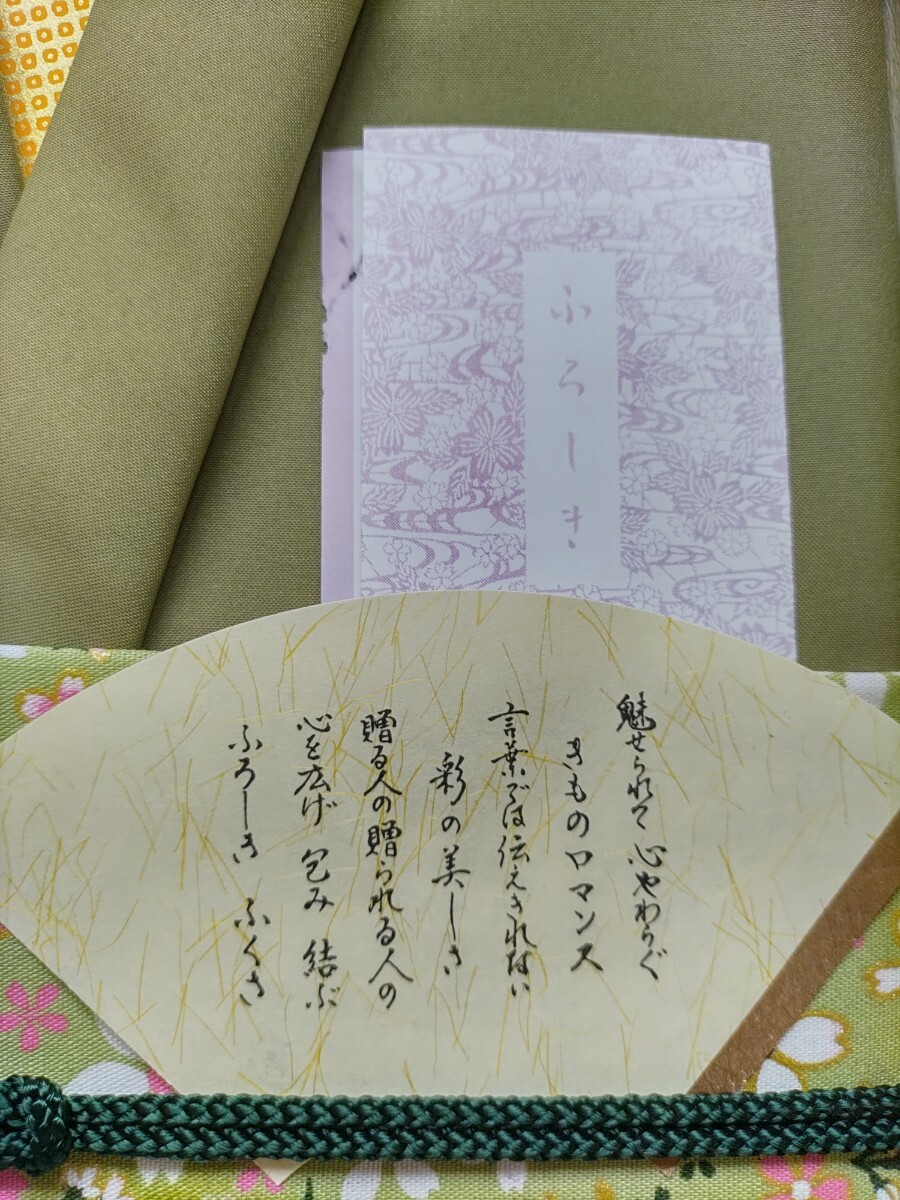 ふろしき
魅せられて 心やわらぐ
きものロマンス
言葉では伝えきれない
彩の美しさ
贈る人の贈られる人の
心を広げ 包み 結ぶ
ふろしき ふくさ